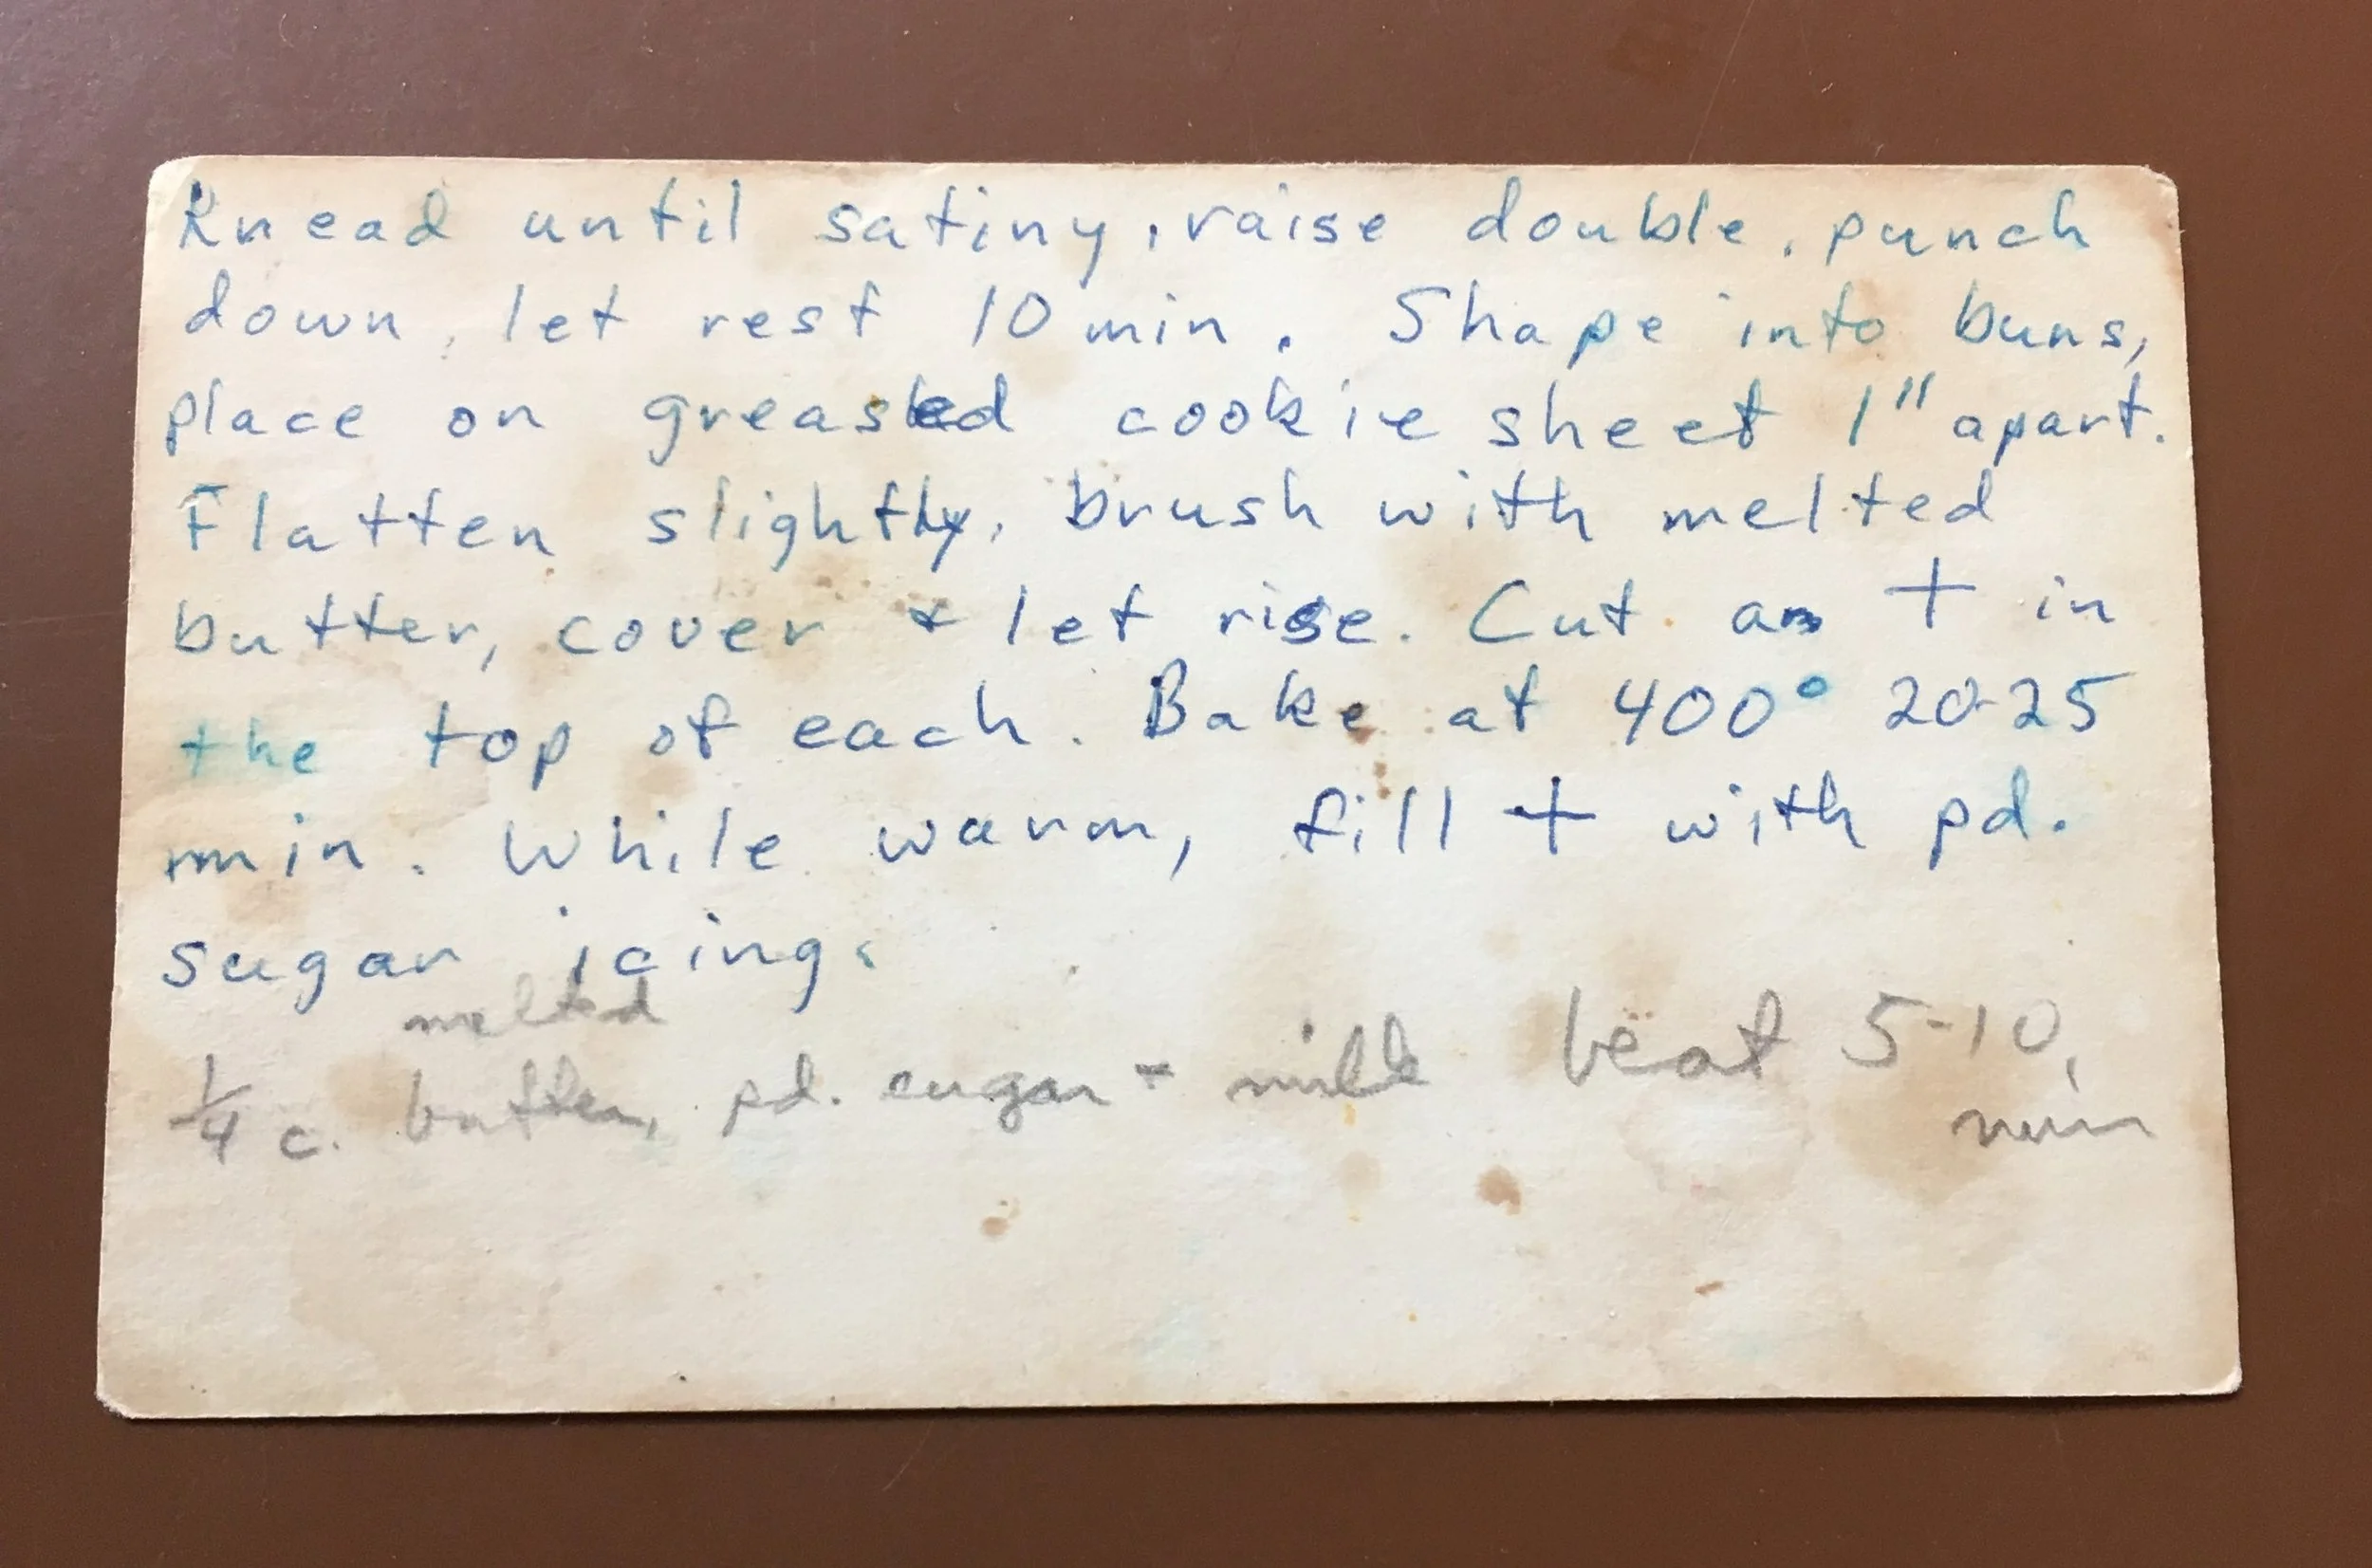 Knead until satiny, raise double, punch
down, let rest 10 min. Shape into buns,
place on greased cookie sheet 1" apart.
Flatten slightly, brush with melted
butter, cover & let rise. Cut a + in
the top of each. Bake at 400° 20-25
min. While warm, fill + with pd.
sugar icing.
melted
1/4 c. butter, pd. sugar + milk beat 5-10
min